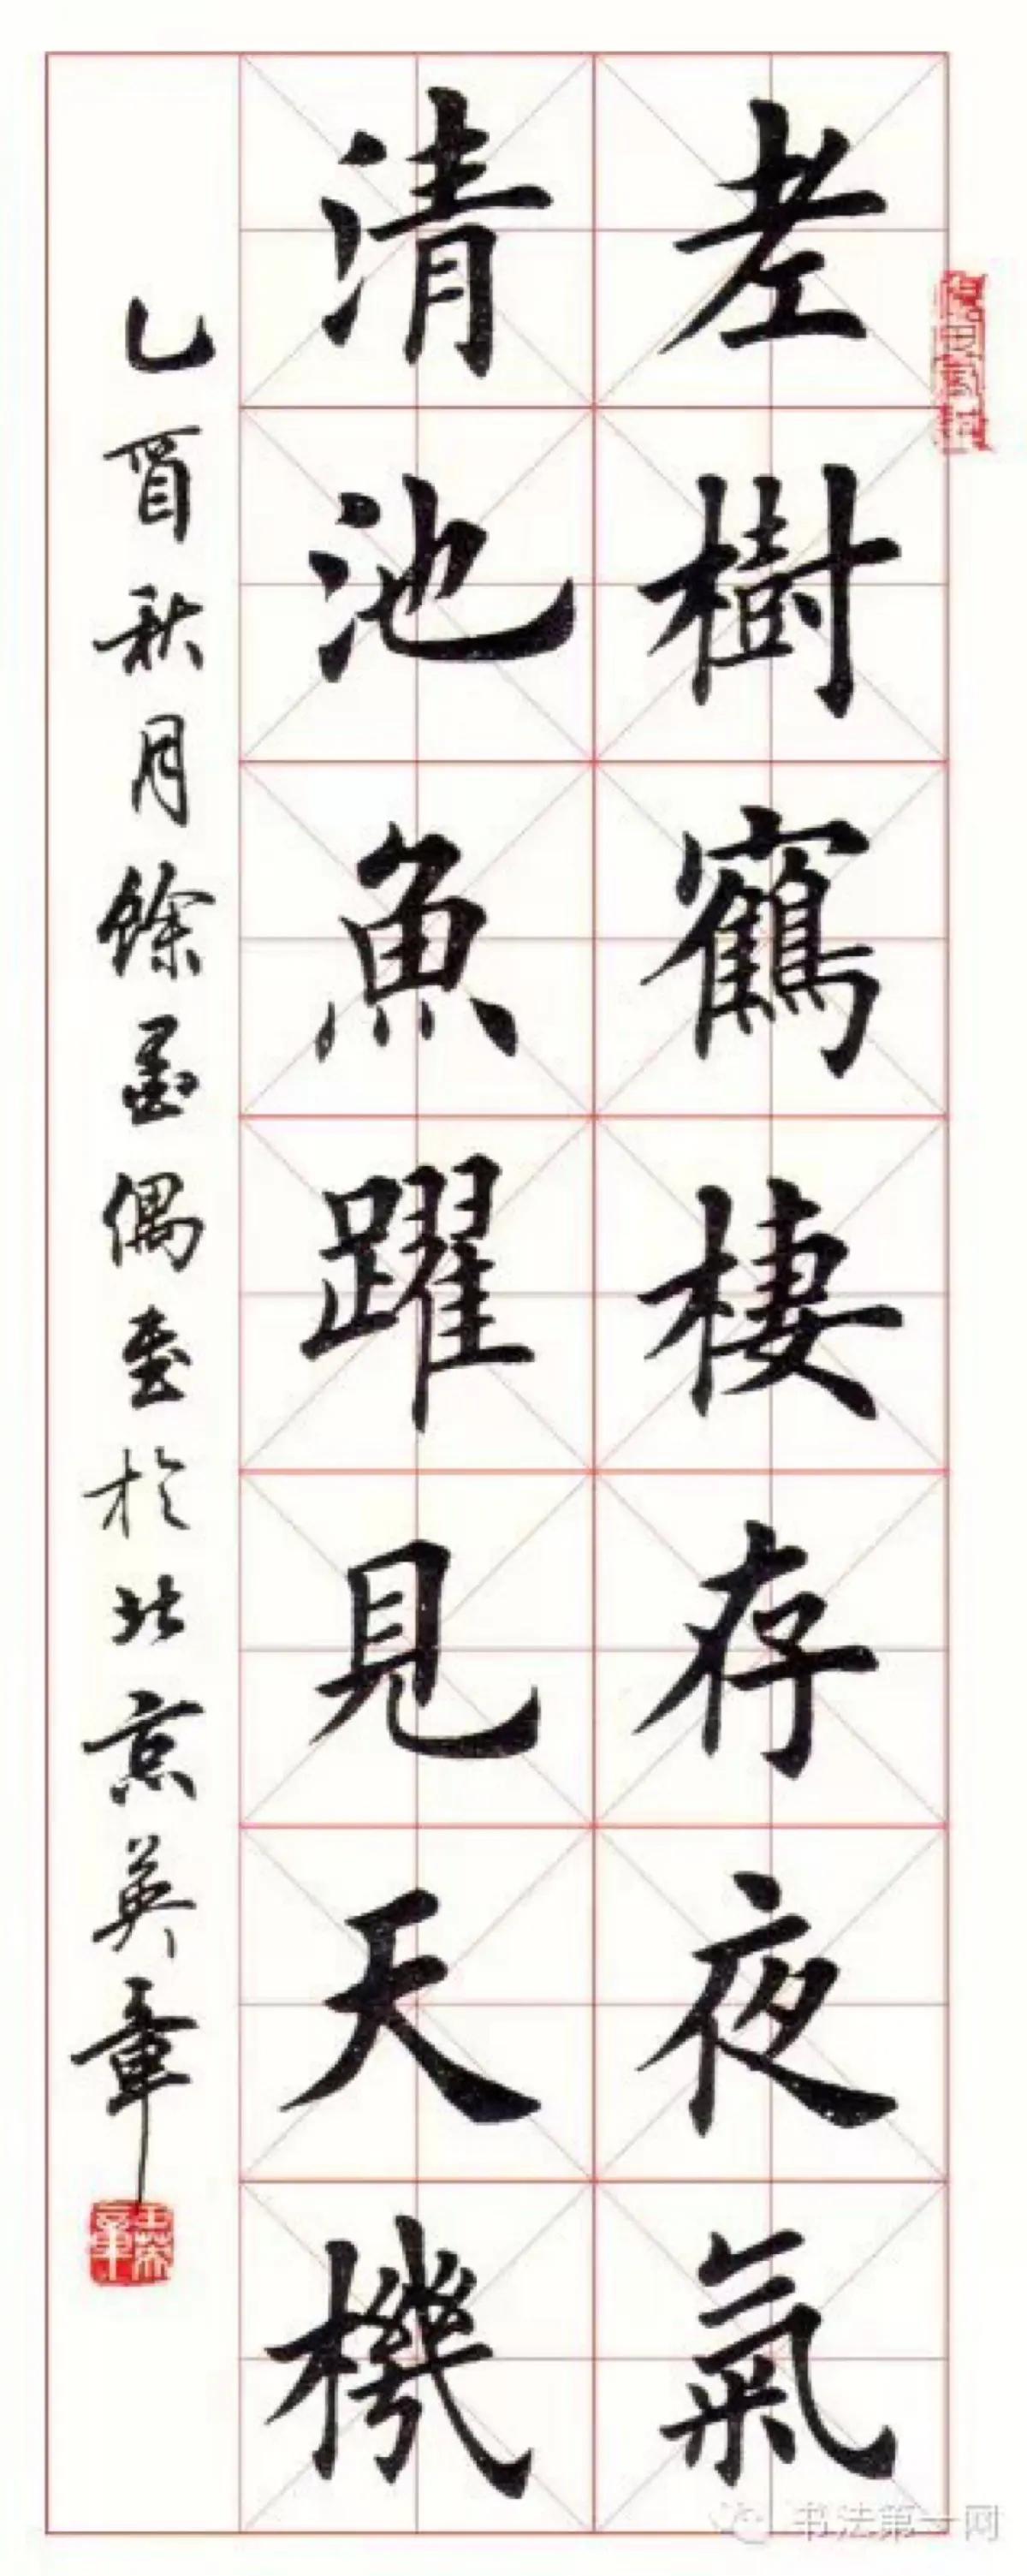 老樹鶴棲存夜氣
清池魚躍見天機
乙酉秋月餘墨偶書於北京英章
书法第一网